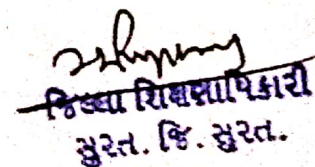 જિલ્લા શિક્ષણાધિકારી
સુરત. જિ. સુરત.